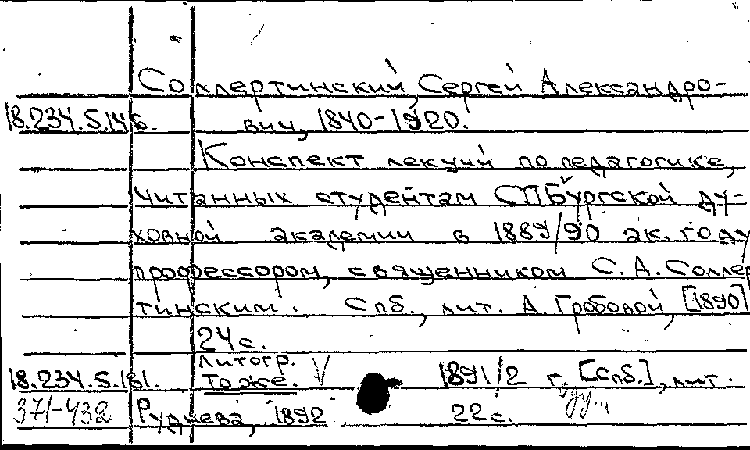 Соллертинский, Сергей Александро-
18.234.5.146. вич, 1840-1920.
Конспект лекций по педагогике,
читанных студентам СПБургской ду-
ховной академии в 1889/90 ак. году
профессором, священником С. А. Соллер
тинским. Спб., лит. А. Гробовой, [1890]
24 с.
Литогр.
18.234.5.181. То же. 1891/2 г. [Спб.], лит.
371-432 Руднева, 1892 22 с.